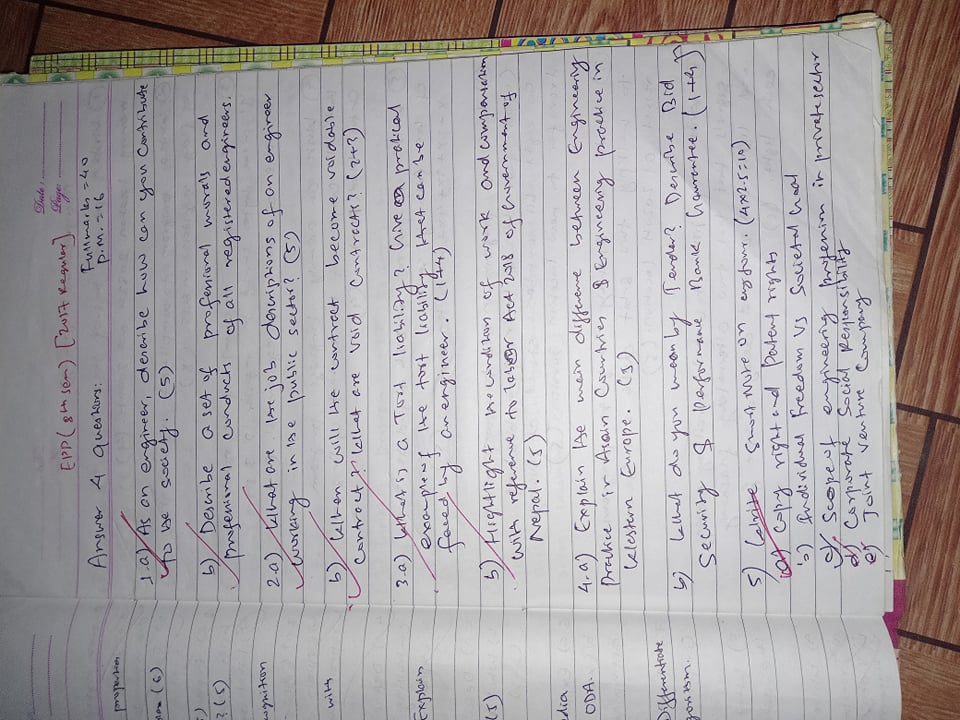 Date:
Page:
EPP (8th sem) [2017 Regular]
Answer 4 questions:
Fullmarks = 40
P.M. = 16
1.a) As an engineer, describe how can you contribute
to the society. (5)
b) Describe a set of professional morals and
professional conducts of all registered engineers.
2.a) What are the job descriptions of an engineer
working in the public sector? (5)
b) When will the contract become voidable
contract? What are void contracts? (2+3)
3.a) What is a Tort liability? Give pratical
example of the tort liability that can be
faced by an engineer. (1+4)
b) Hightlight the condition of work and compensation
with reference to labor Act 2018 of Government of
Nepal. (5)
4.a) Explain the main difference between Engineering
Practice in Asain Countries & Engineering practice in
Western Europe. (5)
b) What do you mean by Tender? Describe Bid
Security & Performance Bank Gaurentee. (1+4)
5) Write Short Note on any four. (4x2.5=10)
a) Copy right and Patent rights
b) Individual Freedom Vs Societal Goal
c) Scope of engineering profession in private sector
d) Corporate Social Responsibility
e) Joint Venture Company
properties
(6)
? (5)
with
Explain
(5)
ODA.
Differentiate